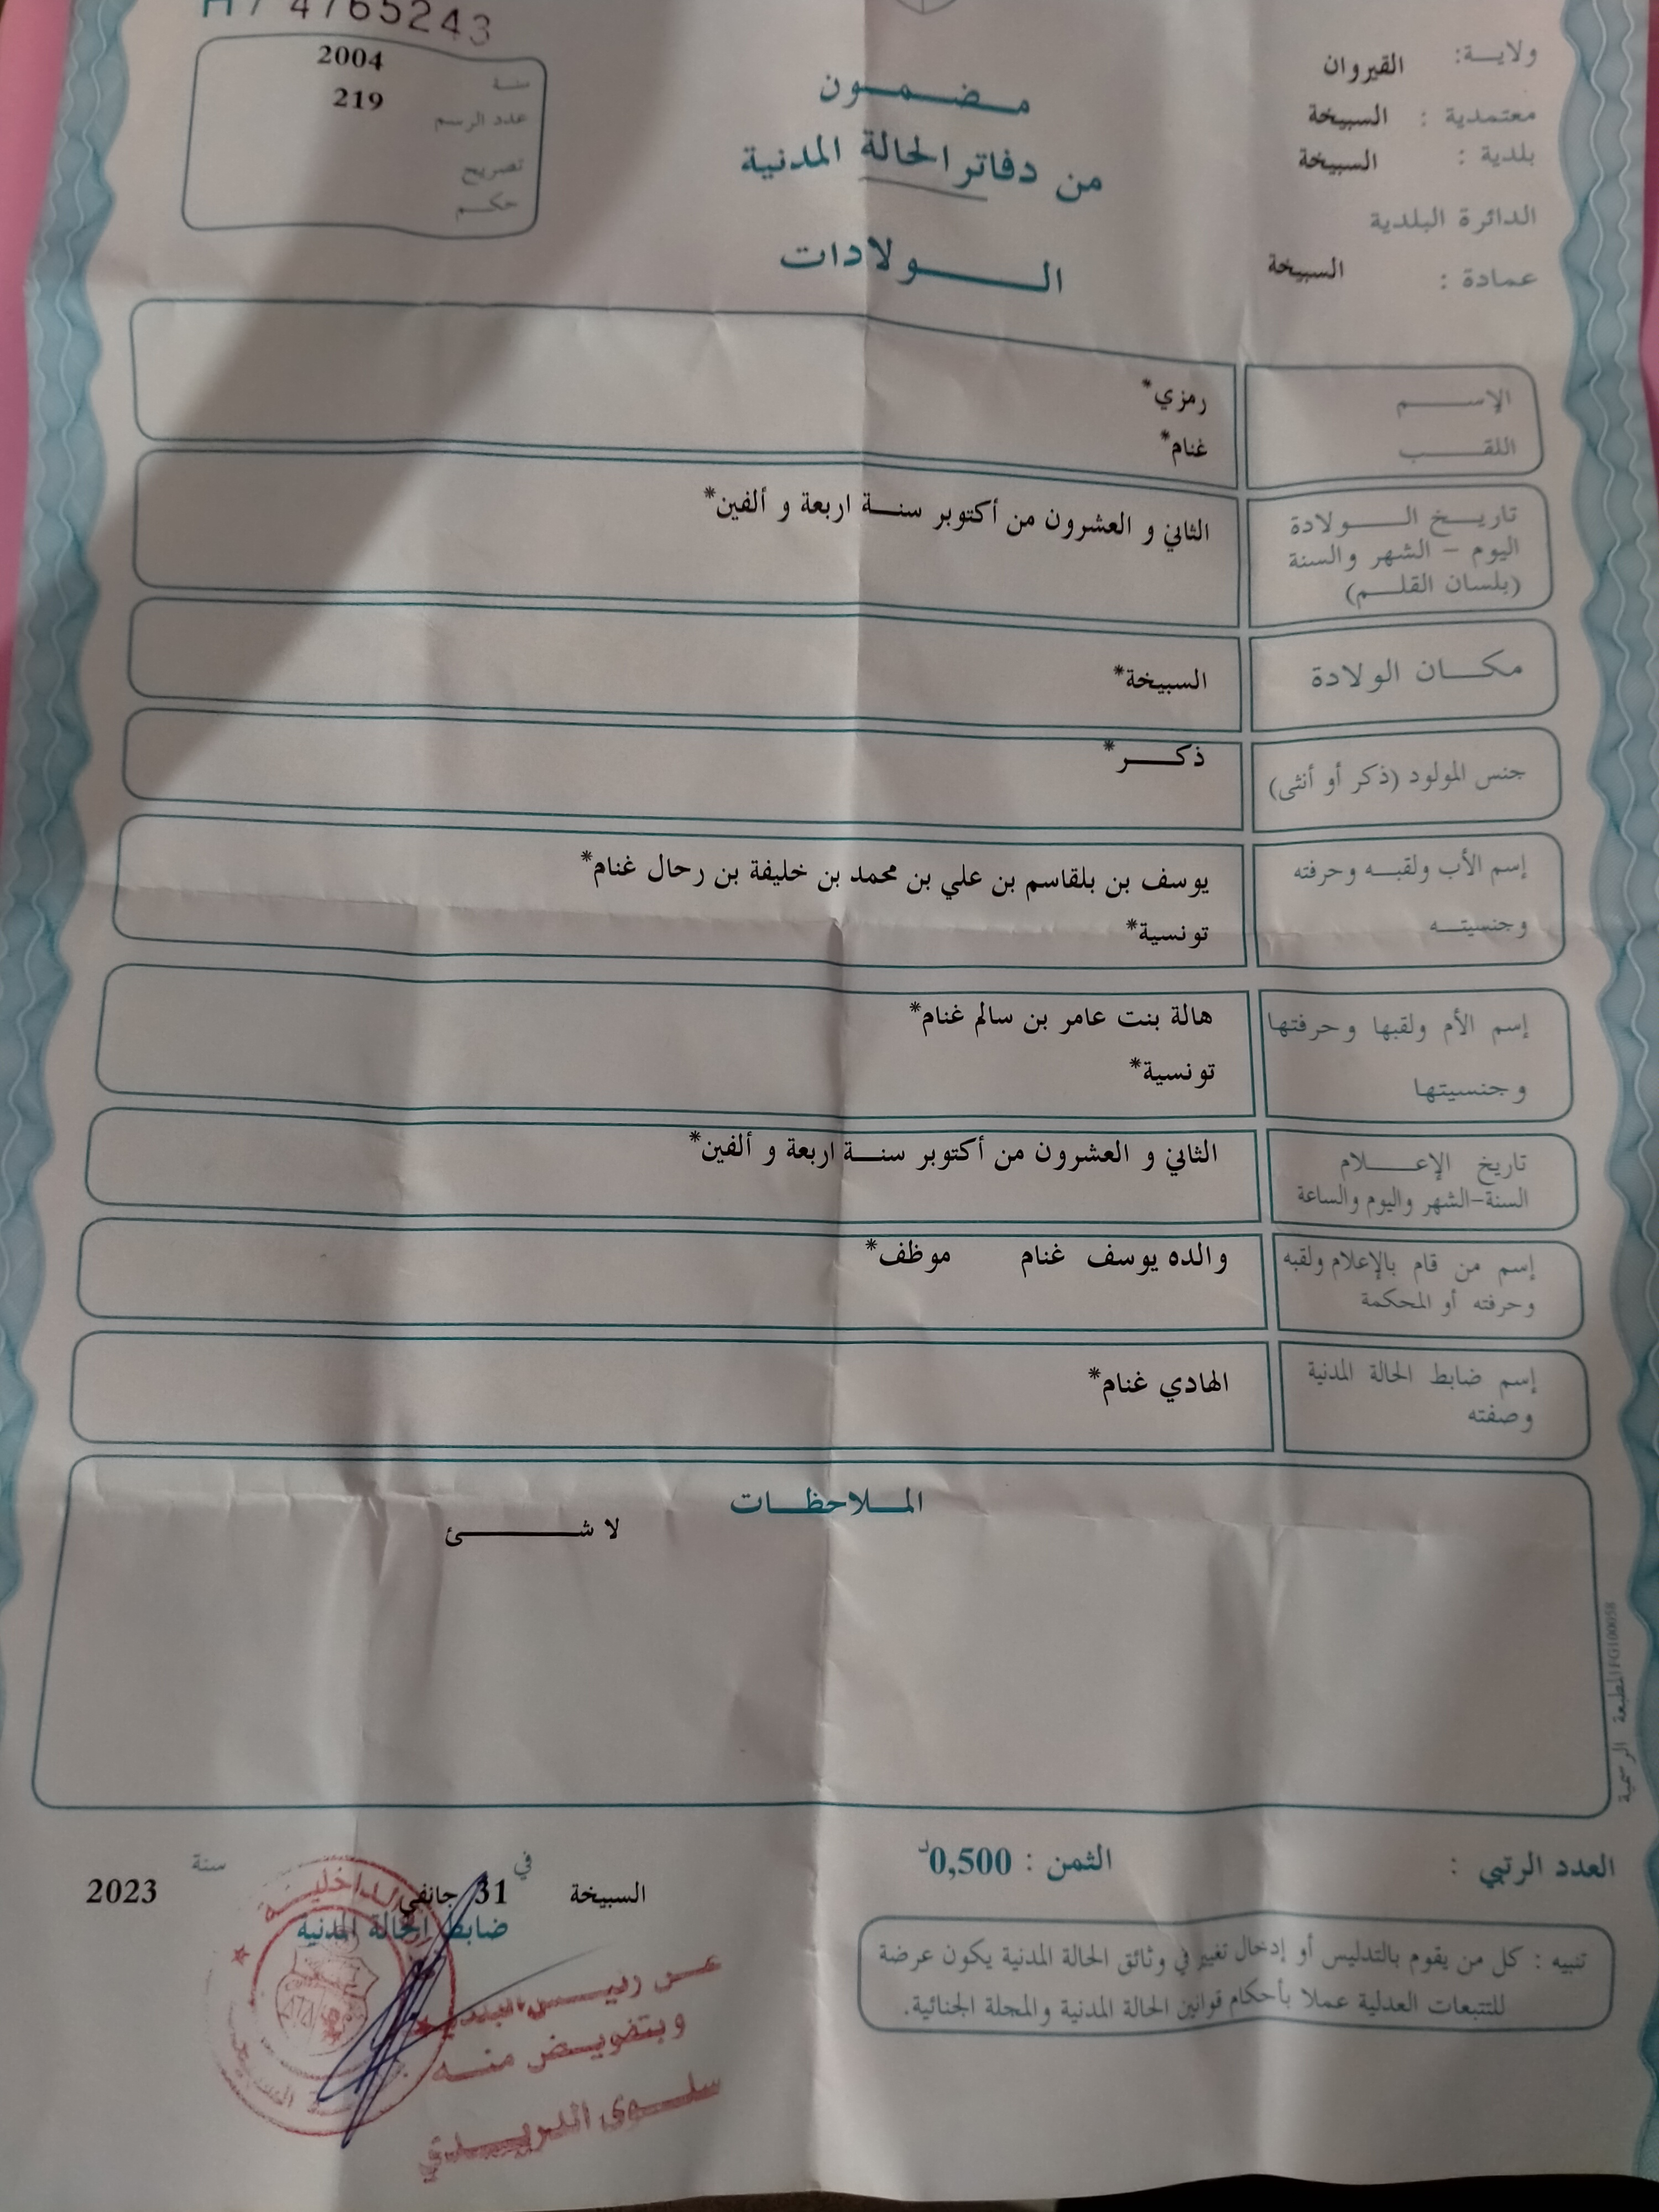 H7 4765243
سنة 2004
عدد الرسم 219
تصريح
حكم
ولاية: القيروان
معتمدية : السبيخة
بلدية : السبيخة
الدائرة البلدية
عمادة : السبيخة
مضمون
من دفاتر الحالة المدنية
الولادات
الإسم رمزي*
اللقب غنام*
تاريخ الولادة
اليوم - الشهر والسنة
(بلسان القلم)
الثاني و العشرون من أكتوبر سنة اربعة و ألفين*
مكان الولادة السبيخة*
جنس المولود (ذكر أو أنثى) ذكر*
إسم الأب ولقبه وحرفته يوسف بن بلقاسم بن علي بن محمد بن خليفة بن رحال غنام*
وجنسيته تونسية*
إسم الأم ولقبها وحرفتها هالة بنت عامر بن سالم غنام*
وجنسيتها تونسية*
تاريخ الإعلام الثاني و العشرون من أكتوبر سنة اربعة و ألفين*
السنة-الشهر واليوم والساعة
إسم من قام بالإعلام ولقبه والده يوسف غنام موظف*
وحرفته أو المحكمة
إسم ضابط الحالة المدنية الهادي غنام*
وصفته
الملاحظات
لا شئ
المطبعة الرسمية
العدد الرتبي :
الثمن : 0,500د
السبيخة في 31 جانفي سنة 2023
ضابط الحالة المدنية
تنبيه : كل من يقوم بالتدليس أو إدخال تغيير في وثائق الحالة المدنية يكون عرضة
للتتبعات العدلية عملا بأحكام قوانين الحالة المدنية والمجلة الجنائية.
الداخلية
عن رئيس البلدية
وبتفويض منه
سلوى الدريدي